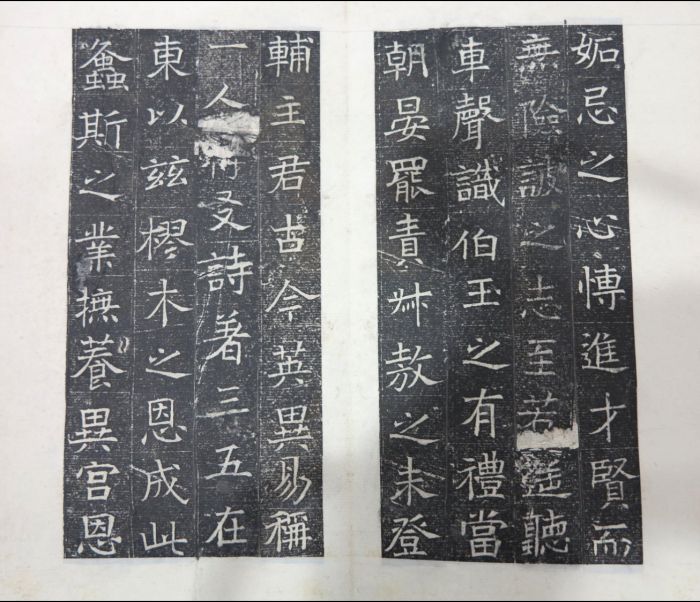 妬忌之心慱進才賢而
無險詖之志至若聽
車聲識伯玉之有禮當
朝晏罷責叔敖之未登
輔主君古今英異易稱
一人友詩著三五在
東以兹樛木之恩成此
螽斯之業撫養異宮恩